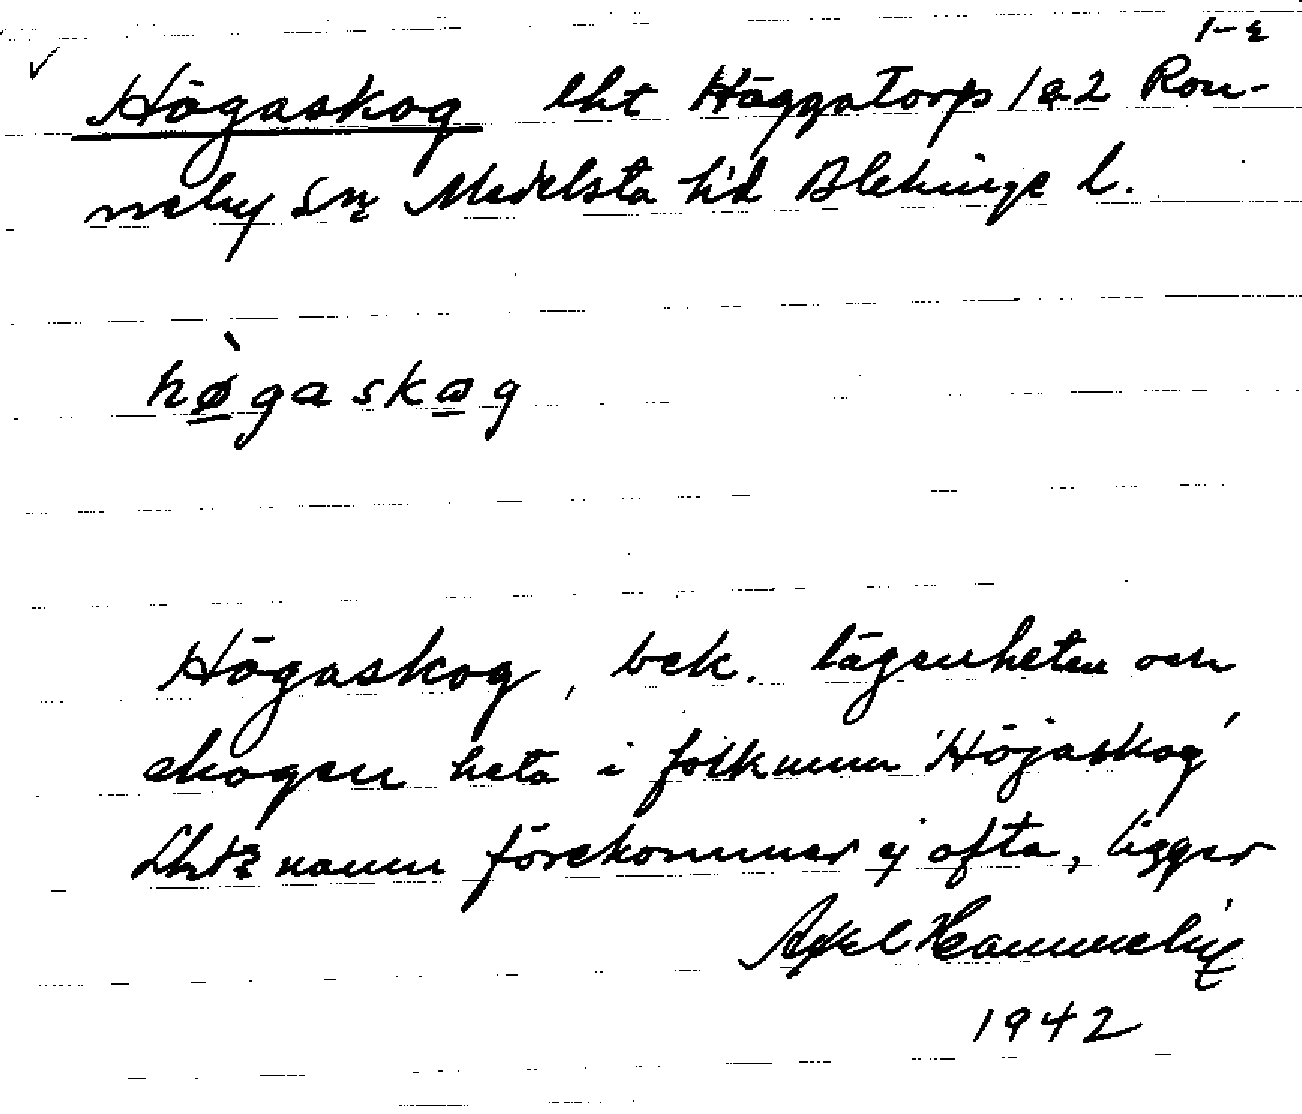 1-2
Högaskog lht Häggatorp 1a2 Ron-
neby sn Medelsta hd Blekinge l.
hø̀gaskag
Högaskog, bek. lägenheten och
skogen heta i folkmun 'Höjaskog'
Lhts namn förekommer ej ofta, ligger
Axel
1942